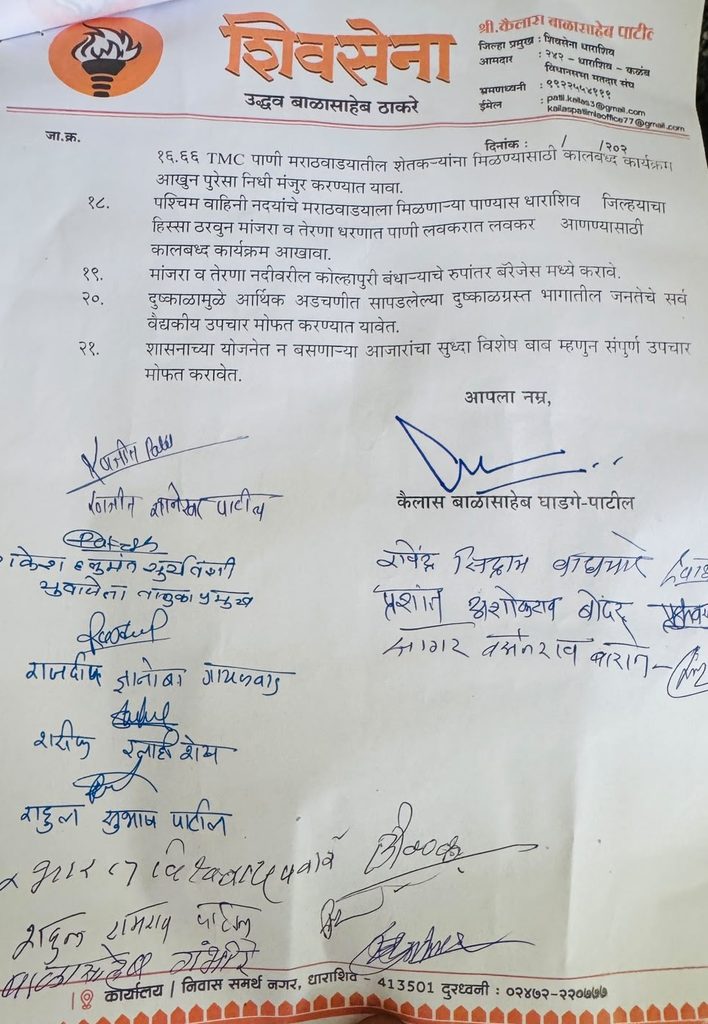 शिवसेना
उद्धव बाळासाहेब ठाकरे
श्री. कैलास बाळासाहेब पाटील
जिल्हा प्रमुख : शिवसेना धाराशिव
आमदार : २४२ – धाराशिव – कळंब
विधानसभा मतदार संघ
भ्रमणध्वनी : ९९२२५५४१११
ईमेल : patil.kailas3@gmail.com
kailaspatilmlaoffice77@gmail.com
जा.क्र.
दिनांक : / /२०२
१६.६६ TMC पाणी मराठवाडयातील शेतकऱ्यांना मिळण्यासाठी कालबध्द कार्यक्रम
आखुन पुरेसा निधी मंजुर करण्यात यावा.
१८. पश्चिम वाहिनी नदयांचे मराठवाडयाला मिळणाऱ्या पाण्यास धाराशिव जिल्हयाचा
हिस्सा ठरवुन मांजरा व तेरणा धरणात पाणी लवकरात लवकर आणण्यासाठी
कालबध्द कार्यक्रम आखावा.
१९. मांजरा व तेरणा नदीवरील कोल्हापुरी बंधाऱ्याचे रुपांतर बॅरेजेस मध्ये करावे.
२०. दुष्काळामुळे आर्थिक अडचणीत सापडलेल्या दुष्काळग्रस्त भागातील जनतेचे सर्व
वैद्यकीय उपचार मोफत करण्यात यावेत.
२१. शासनाच्या योजनेत न बसणाऱ्या आजारांचा सुध्दा विशेष बाब म्हणुन संपुर्ण उपचार
मोफत करावेत.
आपला नम्र,
कैलास बाळासाहेब घाडगे-पाटील
पाटील
हनुमंत सुर्यवंशी
युवासेना तालुका प्रमुख
राजदीप ज्ञानोबा गायकवाड
शरीफ शेख
राहुल सुभाष पाटील
रविंद्र सिद्राम वाघमारे
प्रशांत अशोकराव बोंदर
सागर वसंतराव बाराते
पवार
रामराव पाटील
बाळासाहेब गंभीरे
कार्यालय | निवास समर्थ नगर, धाराशिव - 413501 दुरध्वनी : ०२४७२-२२०७७७